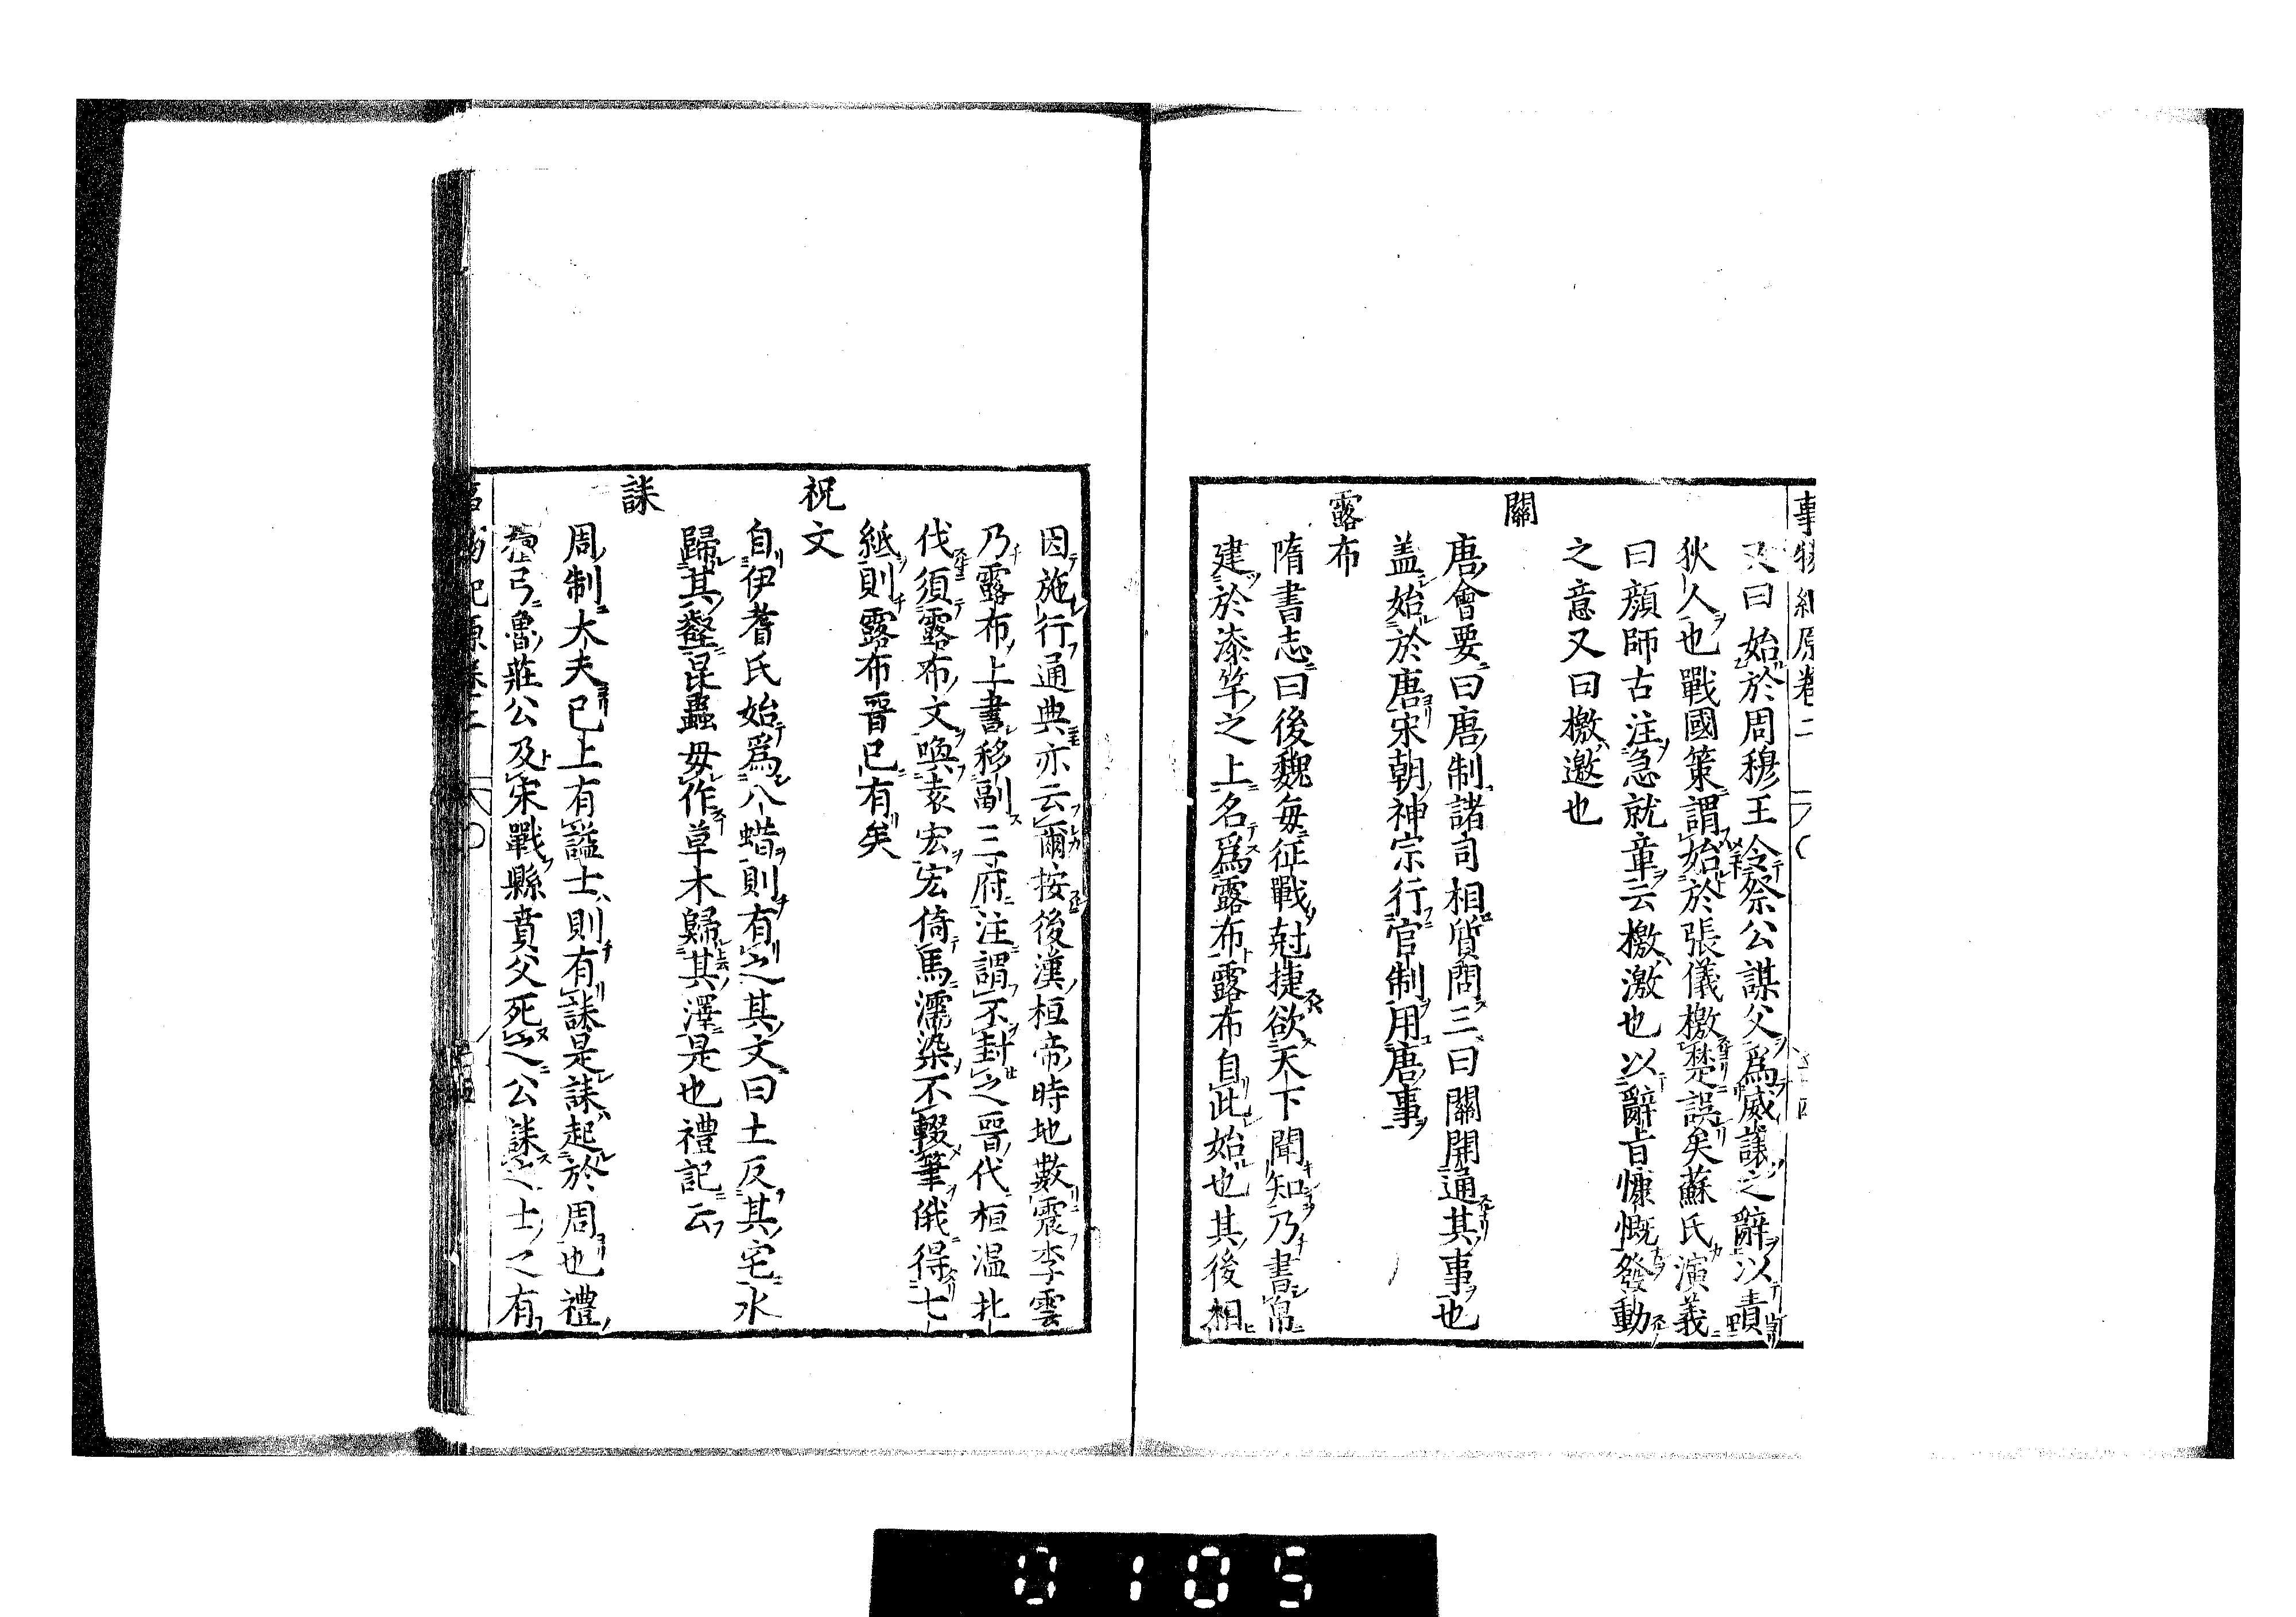 事物紀原卷二
又曰始於周穆王令祭公謀父爲威讓之辭以責
狄人也戰國策謂始於張儀檄楚誤矣蘇氏演義
曰顔師古注急就章云檄激也以辭旨慷慨發動
之意又曰檄邀也
關
唐會要曰唐制諸司相質問三曰關開通其事也
盖始於唐宋朝神宗行官制用唐事
露布
隋書志曰後魏每征戰尅捷欲天下聞知乃書帛
建於漆竿之上名爲露布露布自此始也其後相
因施行通典亦云爾按後漢桓帝時地數震李雲
乃露布上書移副三府注謂不封之晉代桓温北
伐須露布文喚袁宏宏倚馬濡染不輟筆俄得七
紙則露布晉已有矣
祝文
自伊耆氏始爲八蜡則有之其文曰土反其宅水
歸其壑昆蟲毋作草木歸其澤是也禮記云
誄
周制大夫已上有謚士則有誄是誄起於周也禮
檀弓魯莊公及宋戰縣賁父死之公誄之士之有
0105